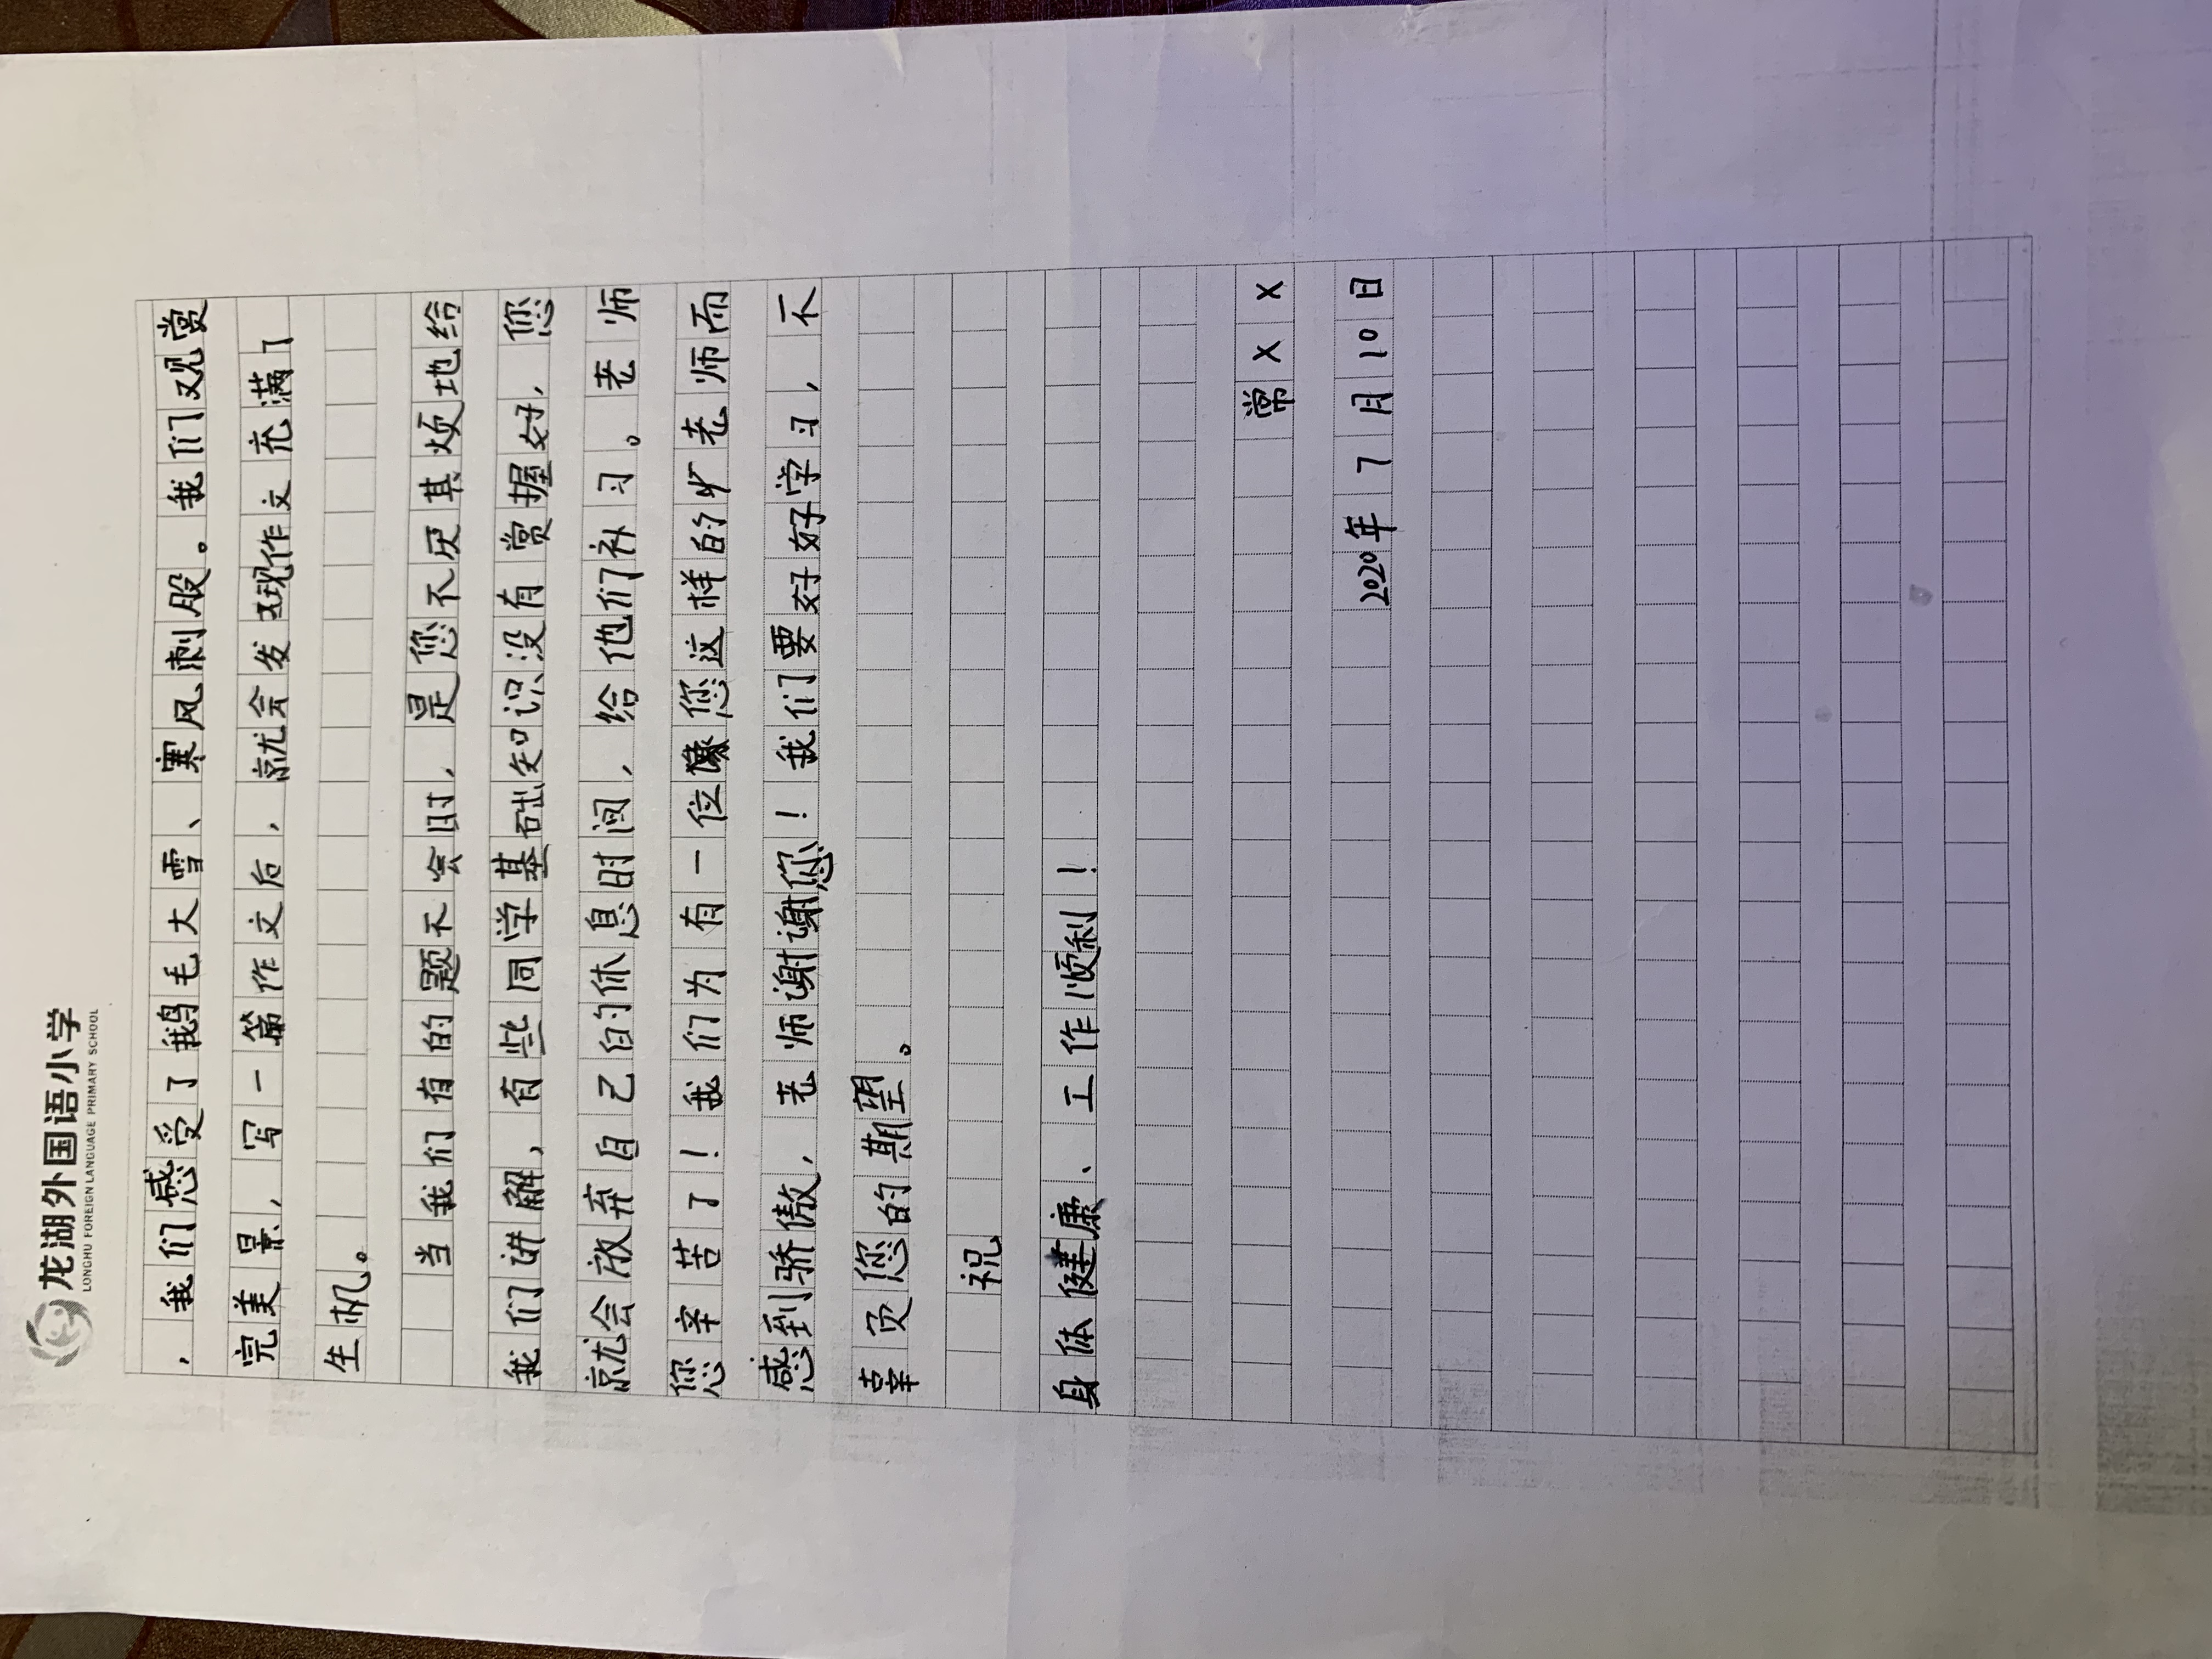 龙湖外国语小学
LONGHU FOREIGN LANGUAGE PRIMARY SCHOOL
，我们感受了鹅毛大雪、寒风刺股。我们观赏
完美景，写一篇作文后，就会发现作文充满了
生机。
当我们有的题不会时，是您不厌其烦地给
我们讲解，有些同学基础知识没有赏握好，您
就会放弃自己的休息时间，给他们补习。老师
您辛苦了！我们为有一位像您这样的老师而
感到骄傲，老师谢谢您！我们要好好学习，不
辜负您的期望。
祝
身体健康、工作顺利！
常××
2020年7月10日